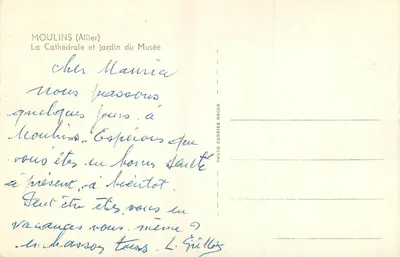 MOULINS (Allier)
La Cathédrale et jardin du Musée
cher Maurice
nous passons
quelques jours à
Moulins. Espérons que
vous êtes en bonne santé
à présent, à bientôt.
Peut être êtes vous en
vacances vous même ?
tous
PHOTO COMBIER MACON